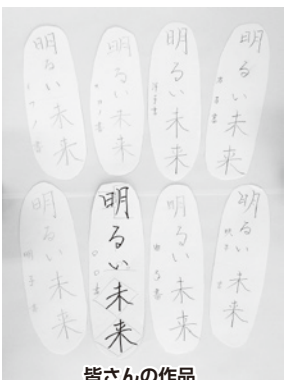 明るい未来
明るい未来
明るい未来
明るい未来
明るい未来
明るい未来
明るい未来
明るい未来
皆さんの作品